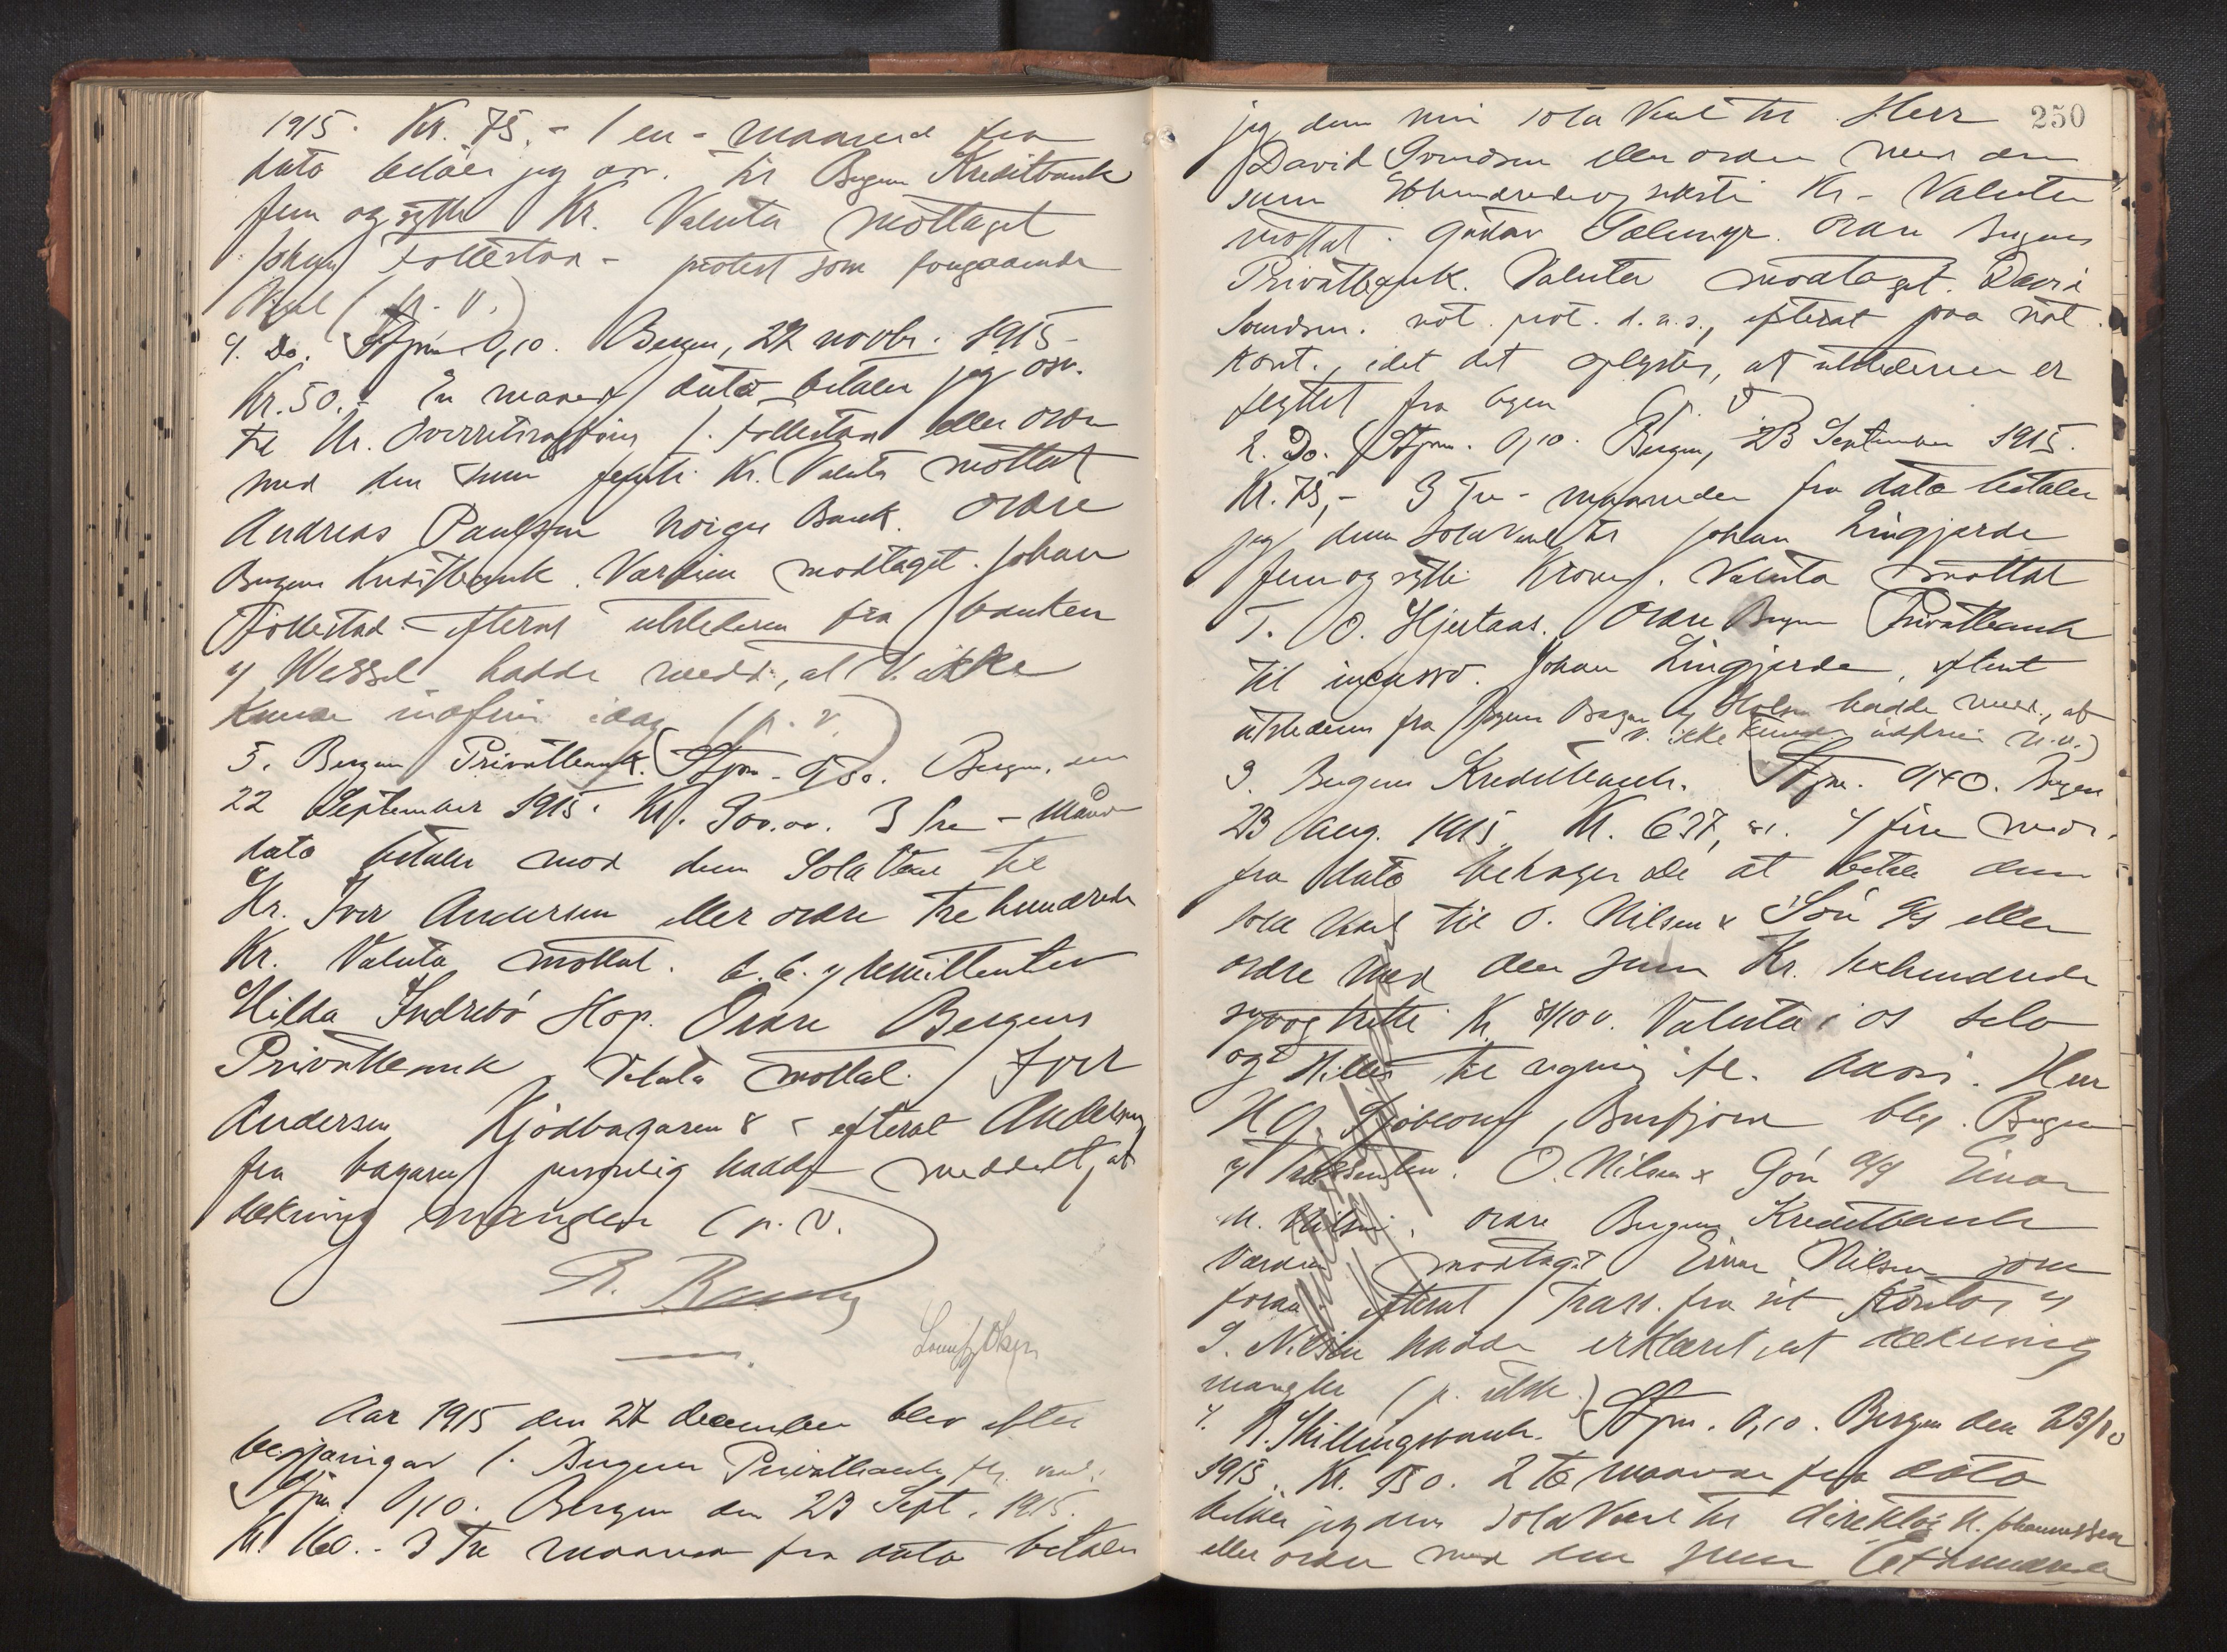 1915. Kr. 75.- 1 en - maaned fra
dato betaler jeg osv. til Bergens Kreditbank
fem og sytti Kr. Valuta mottaget
Johan Follestad - protest som foregaaende
Vexel (p. v.)
4. Do. Stpm 0,10. Bergen, 22 novbr. 1915-
Kr. 50.- En maaned dato betaler jeg osv.
til Hr. Overretssakfører J. Follestad eller ordre
med den sum femti Kr. Valuta mottat
Andreas Paulsen Norges Bank. Ordre
Bergens Kreditbank. Værdien modtaget. Johan
Follestad - efterat utstederen fra banken
v/ Wessel hadde medd., at V. ikke
kunde indfries idag (p. v.)
5. Bergens Privatbank. Stpm - 0,30. Bergen, den
22 September 1915. Kr. 300.00. 3 tre - maan
dato betaler mod denne Sola Vexel til
Hr. Iver Andersen eller ordre tre hundrede
Kr. Valuta mottat. b. b. v/ remittenten
Hilda Indrebö Hop. Ordre Bergens
Privatbank Valuta mottat. Iver
Andersen Kjödbasaren 8 - efterat Andersen
fra basaren personlig hadde meddelt, at
dækning mangler (p. v.)
Aar 1915 den 27 december blev efter
begjæring av 1. Bergens Privatbank
Stpm 0,10. Bergen den 23 Sept. 1915.
Kr. 160.- 3 Tre maaneder fra dato betaler
250
jeg denne min sola Vexel til Herr
David Svendsen eller ordre med den
sum Ethundredeogseksti Kr - Valuta
mottat. Gustav Ordre Bergens
Privatbank. Valuta modtaget. David
Svendsen. not. prot. d. n. s., efterat paa not.
kont., idet det oplystes, at utstederen er
flyttet fra byen (p. v.)
2. Do. Stpm. 0,10. Bergen, 23 September 1915.
Kr. 75,- 3 Tre - maaneder fra dato betaler
jeg denne sola Vexel til Johan Lingjerde
fem og sytti Kroner. Valuta mottat
T. O. Hjertaas. Ordre Bergens Privatbank
til incasso. Johan Lingjerde, efterat
utstederen fra Bergens Basar v/ Holm hadde medd., at
v. ikke kunde indfries (p. v.)
3. Bergens Kreditbank. Stpm. 0,40. Bergen
23 Aug. 1915. Kr. 637,81. 4 fire mdr.
fra dato behager De at betale denne
sola Vexel til O. Nilsen & Søn A/S eller
ordre med den sum Kr. sexhundrede
syvogtretti Kr. 81/100. Valuta i os selv
og stilles til regning ifl. advis. Herr
Bergen
v/ Trassenten. O. Nilsen & Søn A/S Einar
ordre Bergens Kreditbank
Værdien modtaget Einar Nilsen som
foran efterat Trass. fra sit kontor v/
hadde erklæret, at dækning
mangler
4. B. Skillingsbank. Stpm. 0,10. Bergen den 23/10
1915. Kr. 150. 2 to maaneder fra dato
betaler jeg denne sola Vexel til direktør H. Johannessen
eller ordre med den sum Et hundrede